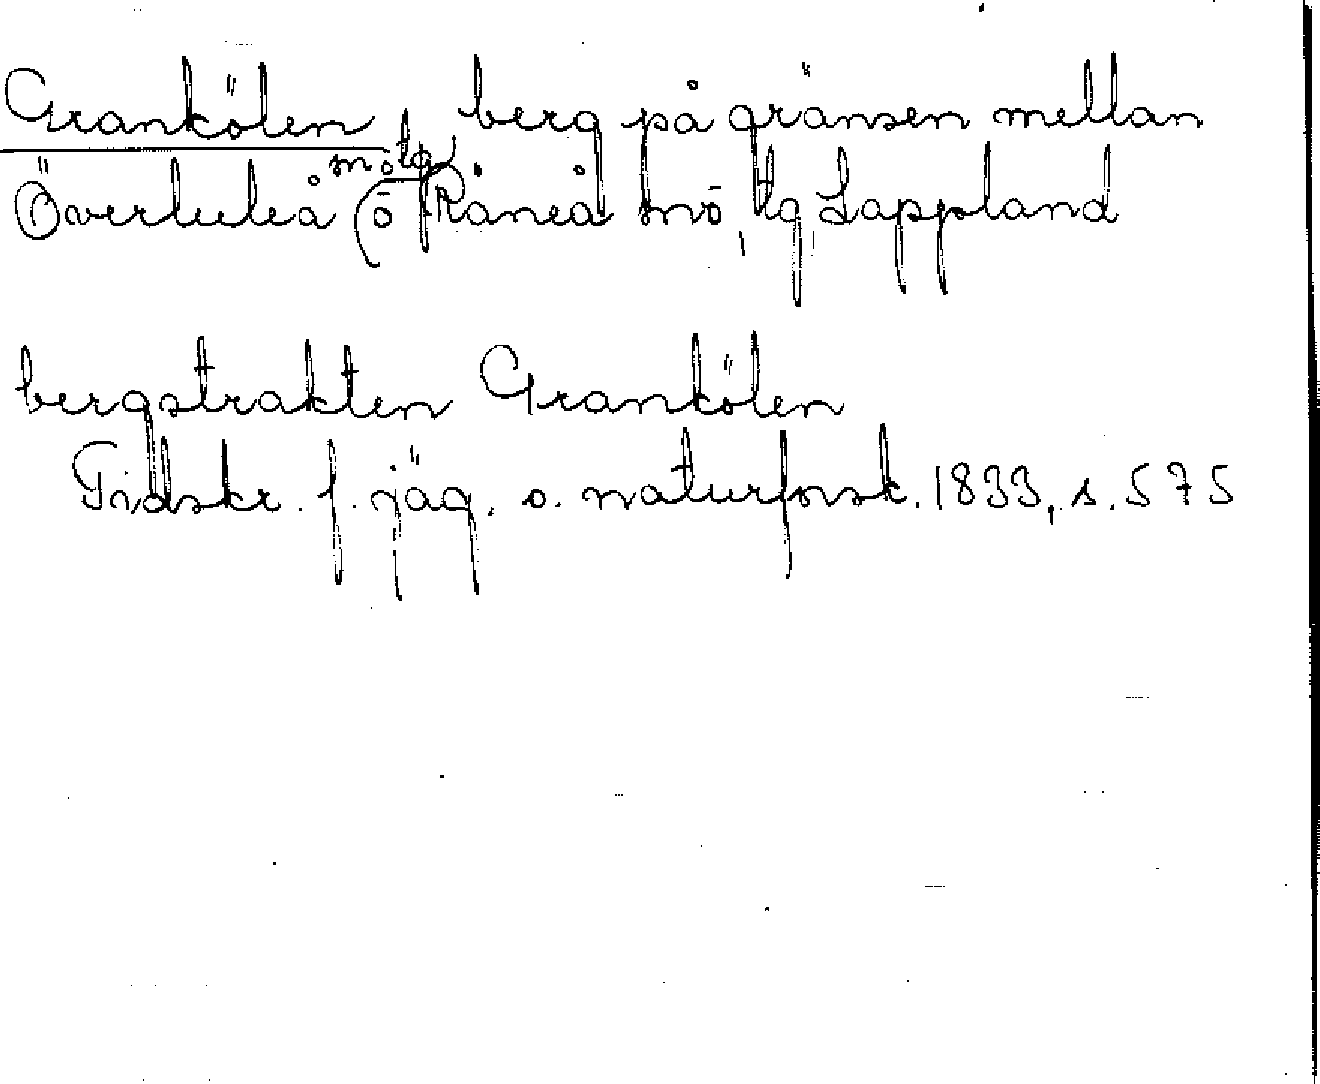 Grankölen, berg på gränsen mellan
Överluleå (ō Råneå snō, tg Lappland
bergstrakten Grankölen
Tidskr. f. jäg. o. naturforsk. 1833, s. 575